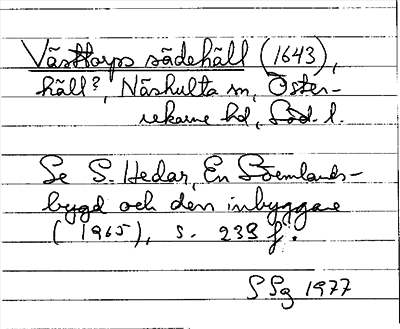 Västtorps sädehäll (1643),
häll?, Näshulta sn, Öster-
rekarne hd, Söd. l.
Se S. Hedar, En Sörmlands-
bygd och dess inbyggare
(1965), s. 233 f.
SSg 1977